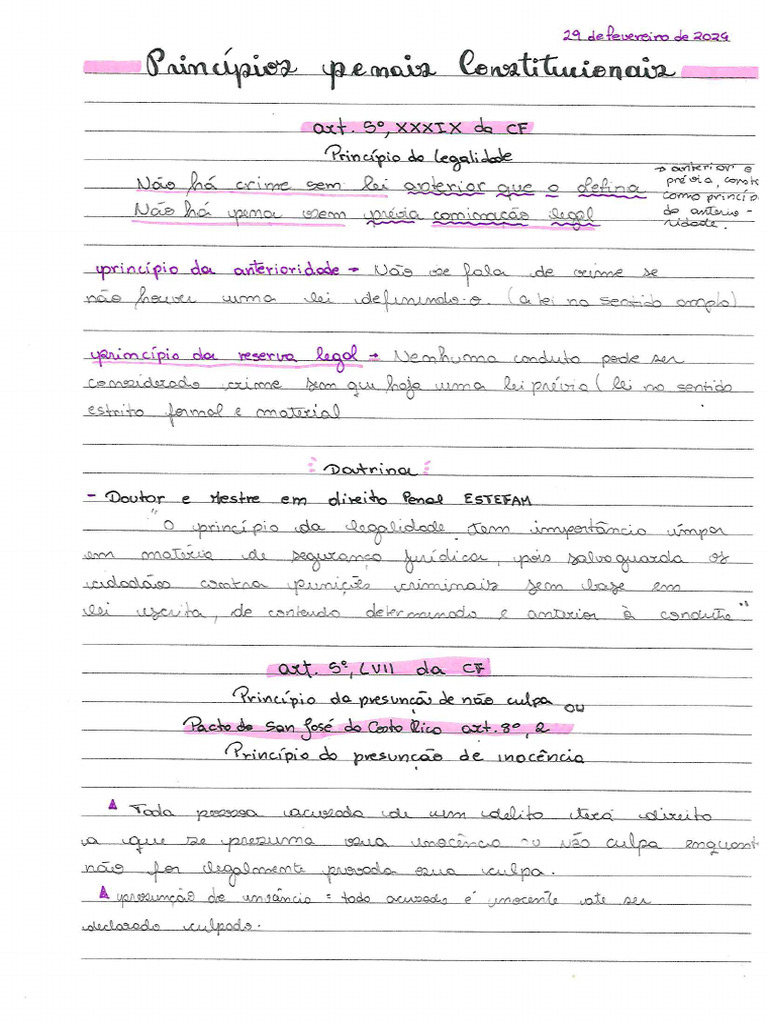 29 de fevereiro de 2024
Princípios penais Constitucionais
art. 5º, XXXIX da CF
Princípio da legalidade
Não há crime sem lei anterior que o defina
Não há pena sem prévia cominação legal
→ anterior e
prévia, const
como princíp
da anterio-
ridade.
princípio da anterioridade → Não se fala de crime se
não houver uma lei definindo-o. (a lei no sentido amplo)
princípio da reserva legal → Nenhuma conduta pode ser
considerada crime sem que haja uma lei prévia (lei no sentido
estrito formal e material
Doutrina
- Doutor e Mestre em direito Penal ESTEFAM
"O princípio da legalidade tem importância ímpar
em matéria de segurança jurídica, pois salvaguarda os
cidadãos contra punições criminais sem base em
lei escrita, de conteúdo determinado e anterior à conduta"
art. 5º, LVII da CF
Princípio da presunção de não culpa ou
Pacto de San José da Costa Rica art. 8º, 2
Princípio da presunção de inocência
Toda pessoa acusada de um delito terá direito
a que se presuma sua inocência ou não culpa enquant
não for legalmente provada sua culpa.
presunção de = todo acusado é inocente até ser
declarado culpado.